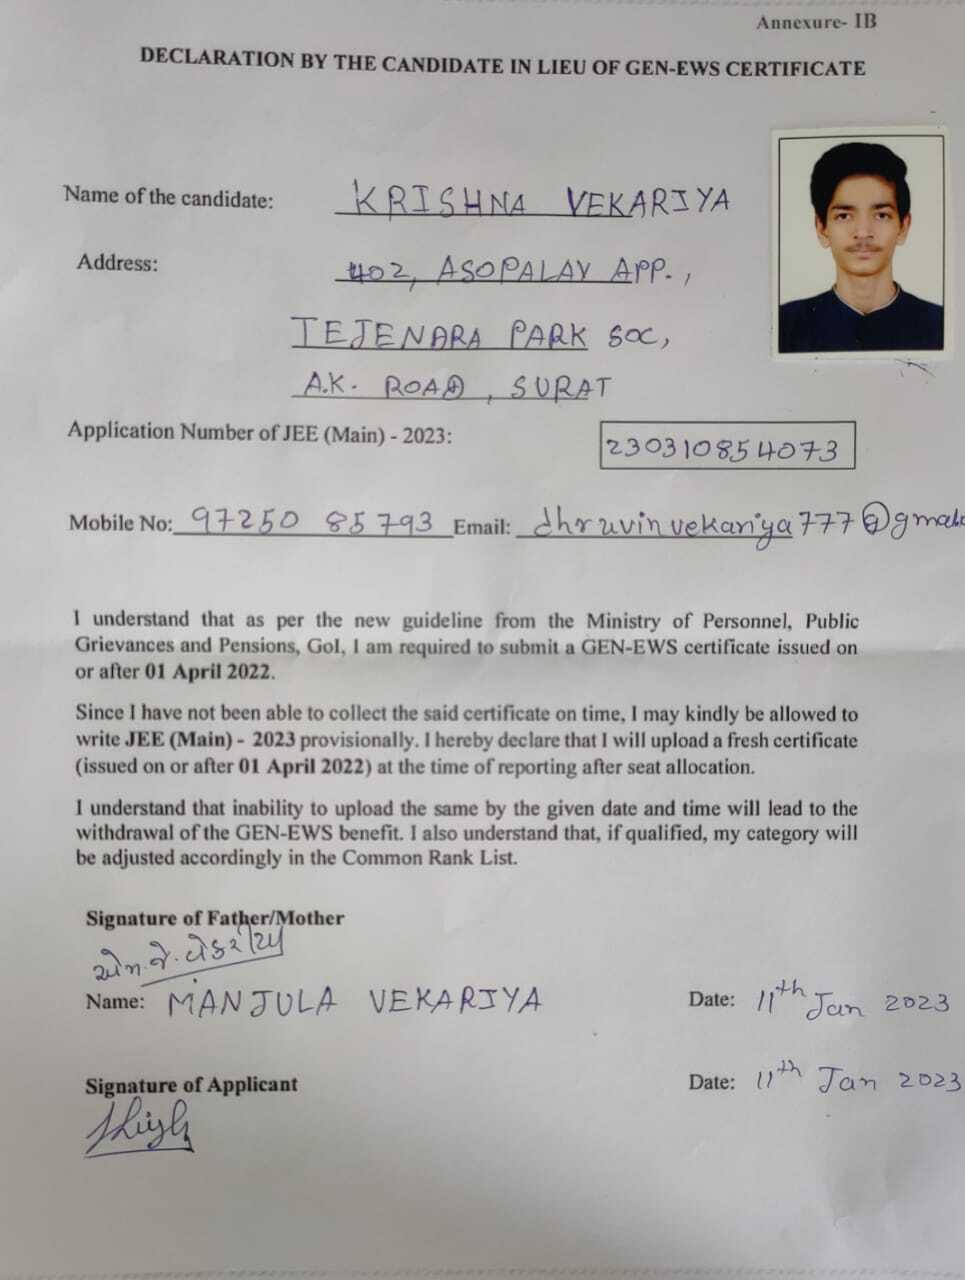 Annexure- IB
DECLARATION BY THE CANDIDATE IN LIEU OF GEN-EWS CERTIFICATE
Name of the candidate: KRISHNA VEKARIYA
Address: 402, ASOPALAV APP.,
TEJENARA PARK SOC,
A.K. ROAD, SURAT
Application Number of JEE (Main) - 2023: 230310854073
Mobile No: 97250 85793 Email: dhruvinvekariya777@gmail
I understand that as per the new guideline from the Ministry of Personnel, Public
Grievances and Pensions, GoI, I am required to submit a GEN-EWS certificate issued on
or after 01 April 2022.
Since I have not been able to collect the said certificate on time, I may kindly be allowed to
write JEE (Main) - 2023 provisionally. I hereby declare that I will upload a fresh certificate
(issued on or after 01 April 2022) at the time of reporting after seat allocation.
I understand that inability to upload the same by the given date and time will lead to the
withdrawal of the GEN-EWS benefit. I also understand that, if qualified, my category will
be adjusted accordingly in the Common Rank List.
Signature of Father/Mother
એમ.જે.વેકરીયા
Name: MANJULA VEKARIYA Date: 11th Jan 2023
Signature of Applicant Date: 11th Jan 2023